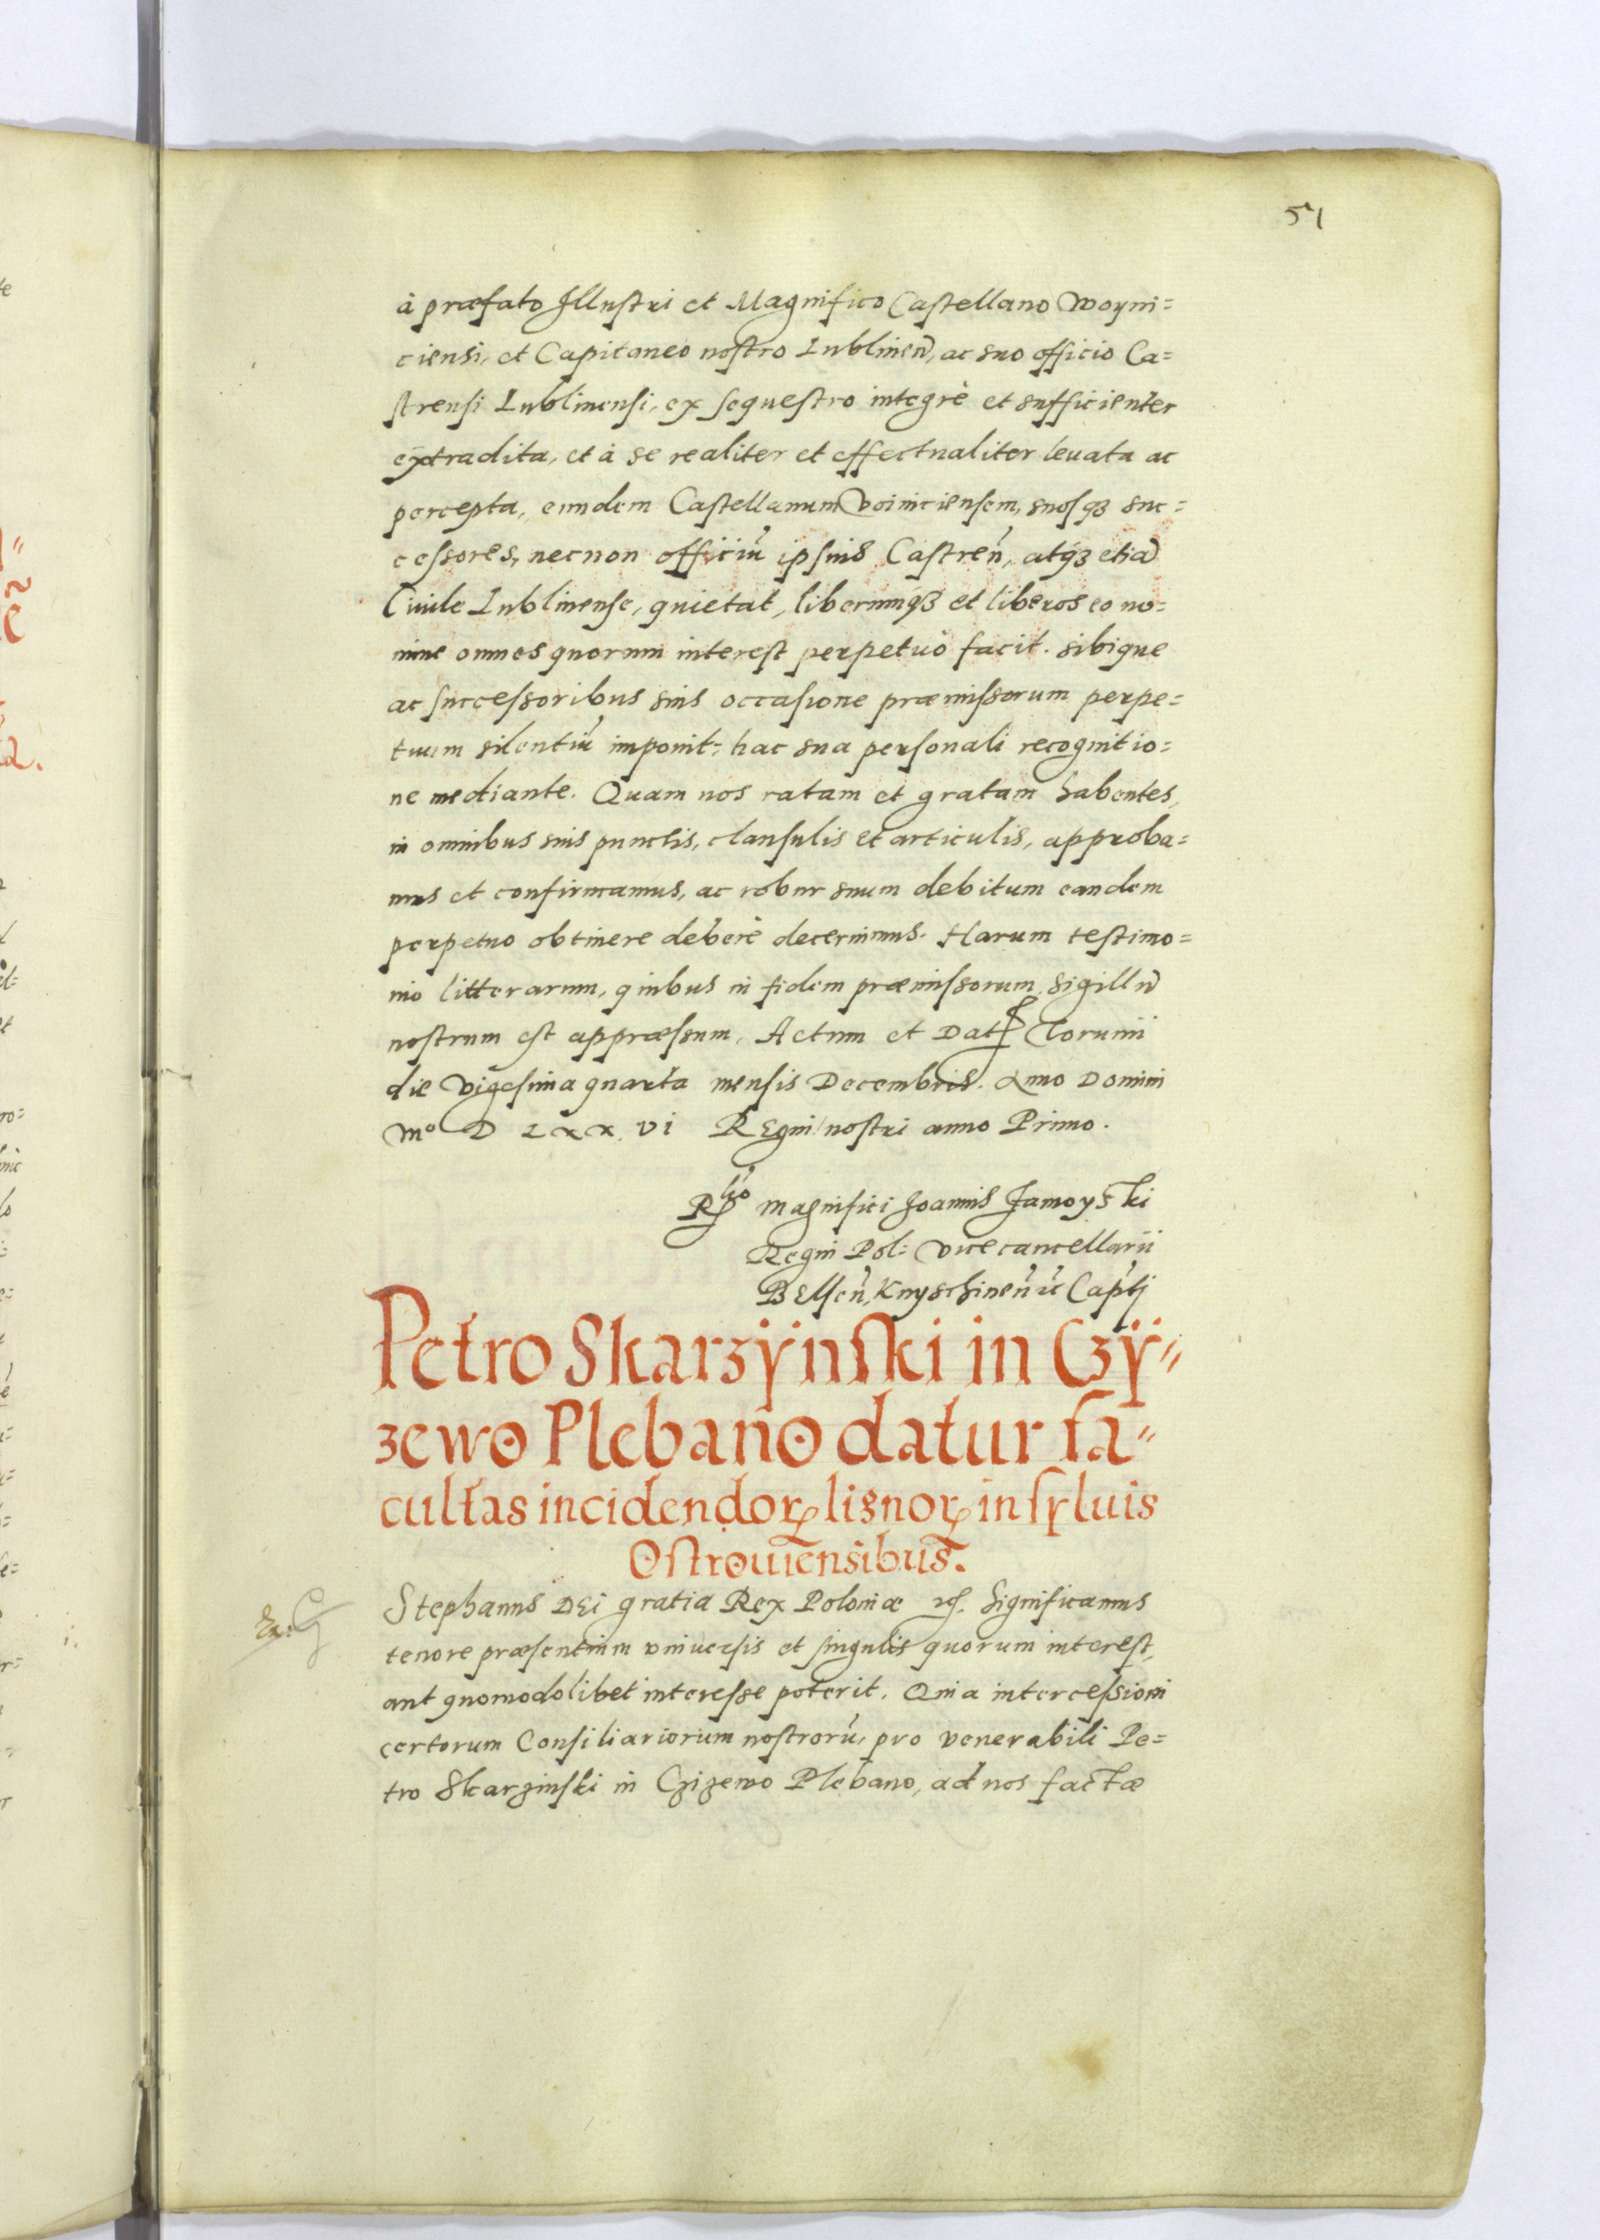 51
à præfato Illustri et Magnifico Castellano Woyni=
ciensi, et Capitaneo nostro Lublinen̄, ac suo officio Ca=
strensi Lublinensi, ex sequestro integrè et sufficienter
extradita, et à se realiter et effectualiter levata ac
percepta, eundem Castellanum Voiniciensem, suosqȝ suc=
cessores, necnon officiū ipsius Castren̄, atqȝ etiā
Ciuile Lublinense, quietat, liberumqȝ et liberos eo no=
mine omnes quorum interest perpetuò facit. sibique
ac successoribus suis occasione præmissorum perpe=
tuum silentiū imponit: hac sua personali recognitio=
ne mediante. Quam nos ratam et gratam habentes,
in omnibus suis punctis, clausulis et articulis, approba=
mus et confirmamus, ac robur suum debitum eandem
perpetuo obtinere deberè decernimus. Harum testimo=
nio litterarum, quibus in fidem præmissorum sigillū
nostrum est appræssum. Actum et Dat Torunii
die vigesima quarta mensis Decembris. Anno Domini
Mº D LXX VI REgni nostri anno Primo.
Rlio Magnifici Joannis Zamoyski
Regni Pol: Vicecancellarii
BElsen̄, Knyschinen̄ꝫ Captj
Petro Skarzÿnski in Czÿ=
zewo Plebano datur fa=
cultas incidendorꝝ lignorꝝ in sÿluis
Ostrouiensibus.
Stephanus DEi gratia Rex Poloniæ ꝛc. Significamus
tenore præsentium vniuersis et singulis quorum interest,
aut quomodolibet interesse poterit. Quia intercessioni
certorum Consiliariorum nostrorū, pro venerabili Pe=
tro Skarzinski in Czizewo Plebano, ad nos factæ